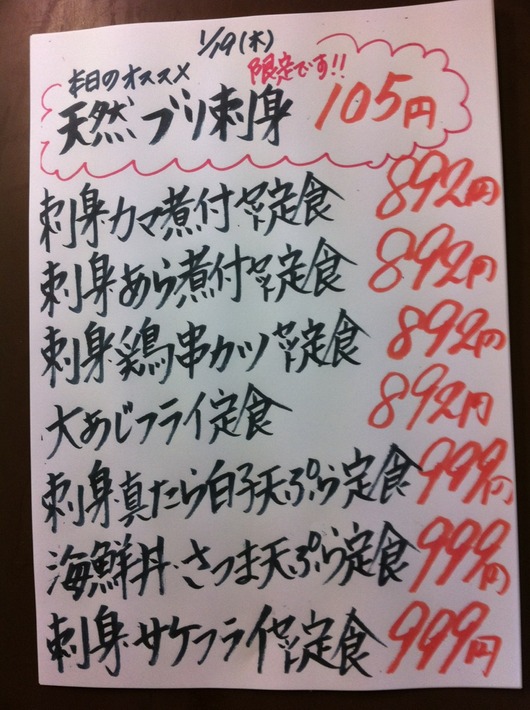 1/19(木)
本日のオススメ
限定です!!
天然ブリ刺身 105円
刺身カマ煮付セット定食 892円
刺身あら煮付セット定食 892円
刺身・鶏串カツセット定食 892円
大あじフライ定食 892円
刺身・真たら白子天ぷら定食 999円
海鮮丼・さつま天ぷら定食 999円
刺身・サケフライセット定食 999円